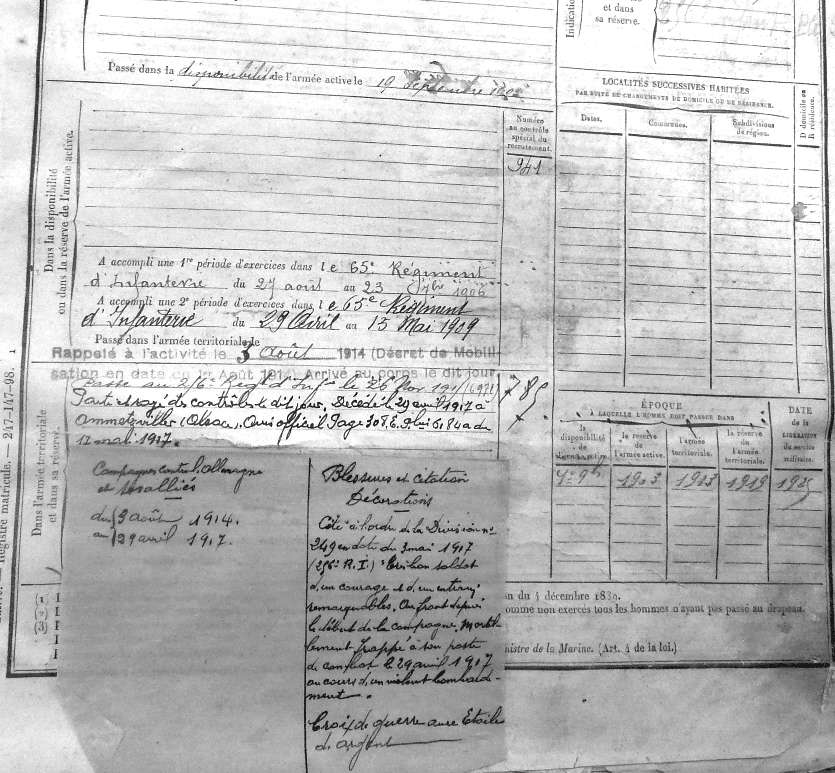 et dans
sa réserve.
Passé dans la disponibilité de l'armée active le 19 Septembre
LOCALITÉS SUCCESSIVES HABITÉES
PAR SUITE DE CHANGEMENTS DE DOMICILE OU DE RÉSIDENCE.
Numéro
au contrôle
spécial du
recrutement.
941
Dates.
Communes.
Subdivisions
de région.
D domicile ou
R résidence.
Dans la disponibilité
ou dans la réserve de l'armée active.
A accompli une 1re période d'exercices dans le 65e Régiment
d'Infanterie du 27 août au 23 7bre 1906
A accompli une 2e période d'exercices dans le 65e Régiment
d'Infanterie du 29 Avril au 15 Mai 1909
Passé dans l'armée territoriale le
Rappelé à l'activité le 3 Août 1914 (Décret de Mobili-
sation en date du 1er Août 1914) Arrivé au corps le dit jour
Passé au 256e Regt d'Inf le 26
Part et rayé des contrôles le dit jour. Décédé le 29 avril 1917 à
Ammertzviller (Alsace). Avis officiel
12 mai 1917.
785
Dans l'armée territoriale
et dans sa réserve.
Registre matricule. — 247-147-98.
ÉPOQUE
À LAQUELLE L'HOMME DOIT PASSER DANS
DATE
DE LA
LIBÉRATION
du service
militaire.
la
disponibilité
de l'armée active.
la réserve
de l'armée active.
l'armée
territoriale.
la réserve
de l'armée
territoriale.
1903
1913
1919
Campagnes contre l'Allemagne
et ses alliés
du 3 août 1914.
au 29 avril 1917.
Blessures et citation
Décorations
Cité à l'ordre de la Division no
249 en date du 3 mai 1917
(256e R.I.) "Très bon soldat
d'un courage et d'un entrain
remarquables. Au front depuis
le début de la campagne. Mortel-
lement frappé à son poste
de combat le 29 avril 1917
au cours d'un violent bombarde-
ment.
Croix de guerre avec Etoile
de argent
(1)
(2)
(3)
du 4 décembre 1889.
comme non exercés tous les hommes n'ayant pas passé au drapeau.
Ministre de la Marine. (Art. 4 de la loi.)